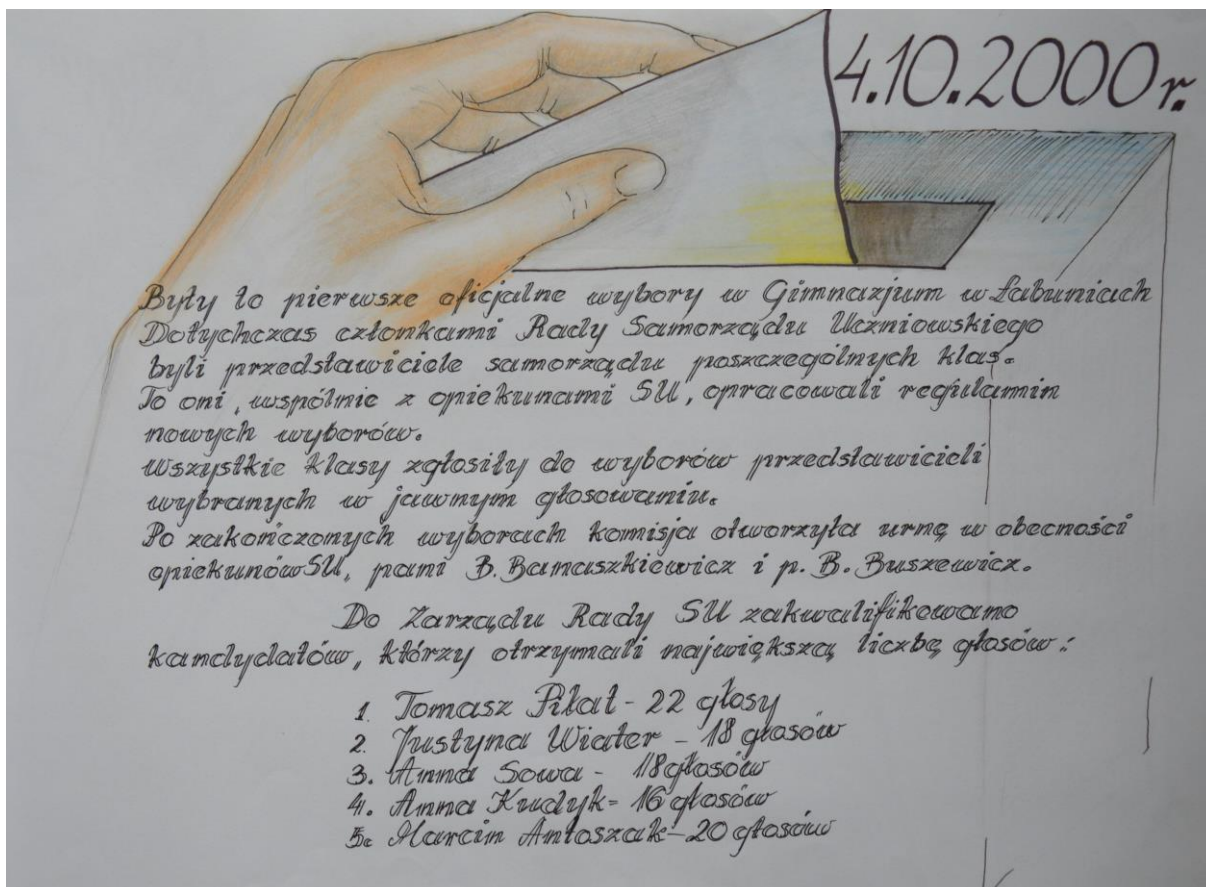 4.10.2000 r.
Były to pierwsze oficjalne wybory w Gimnazjum w Łabuniach
Dotychczas członkami Rady Samorządu Uczniowskiego
byli przedstawiciele samorządu poszczególnych klas.
To oni, wspólnie z opiekunami SU, opracowali regulamin
nowych wyborów.
Wszystkie klasy zgłosiły do wyborów przedstawicieli
wybranych w jawnym głosowaniu.
Po zakończonych wyborach komisja otworzyła urnę w obecności
opiekunów SU, pani B. Banaszkiewicz i p. B. Buszewicz.
Do Zarządu Rady SU zakwalifikowano
kandydatów, którzy otrzymali największą liczbę głosów:
1. Tomasz Piłat - 22 głosy
2. Justyna Wiater - 18 głosów
3. Anna Sowa - 18 głosów
4. Anna Kudyk - 16 głosów
5. Marcin Antoszak - 20 głosów